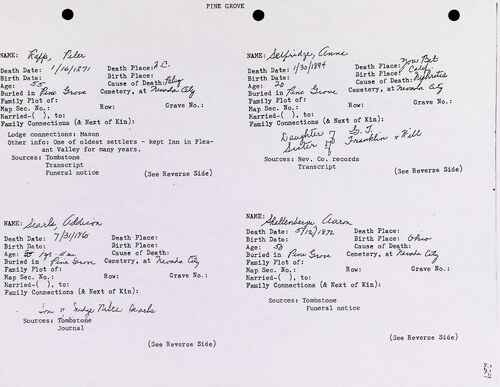 PINE GROVE
NAME: Rapp, Peter
Death Date: 1/16/1871 Death Place: N.C.
Birth Date: Birth Place:
Age: 55 Cause of Death:
Buried in Pine Grove Cemetery, at Nevada City
Family Plot of:
Map Sec. No.: Row: Grave No.:
Married-( ), to:
Family Connections (& Next of Kin):
Lodge connections: Mason
Other info: One of oldest settlers - kept Inn in Pleas-
ant Valley for many years.
Sources: Tombstone
Transcript
Funeral notice
(See Reverse Side)
NAME: Selfridge, Anna
Death Date: 1/30/1894 Death Place: Now Bet
Birth Date: Birth Place: Calif.
Age: 20 Cause of Death: Nephritis
Buried in Pine Grove Cemetery, at Nevada City
Family Plot of:
Map Sec. No.: Row: Grave No.:
Married-( ), to:
Family Connections (& Next of Kin):
Daughter of
Sister of Franklin & Will
Sources: Nev. Co. records
Transcript
(See Reverse Side)
NAME: Searls, Addison
Death Date: 7/31/1860 Death Place:
Birth Date: Birth Place:
Age: 1 yr. Cause of Death:
Buried in Pine Grove Cemetery, at Nevada City
Family Plot of:
Map Sec. No.: Row: Grave No.:
Married-( ), to:
Family Connections (& Next of Kin):
Son of Judge Niles Searls
Sources: Tombstone
Journal
(See Reverse Side)
NAME: Shellenberger, Aaron
Death Date: 5/12/1872 Death Place:
Birth Date: Birth Place: Ohio
Age: 53 Cause of Death:
Buried in Pine Grove Cemetery, at Nevada City
Family Plot of:
Map Sec. No.: Row: Grave No.:
Married-( ), to:
Family Connections (& Next of Kin):
Sources: Tombstone
Funeral notice
(See Reverse Side)